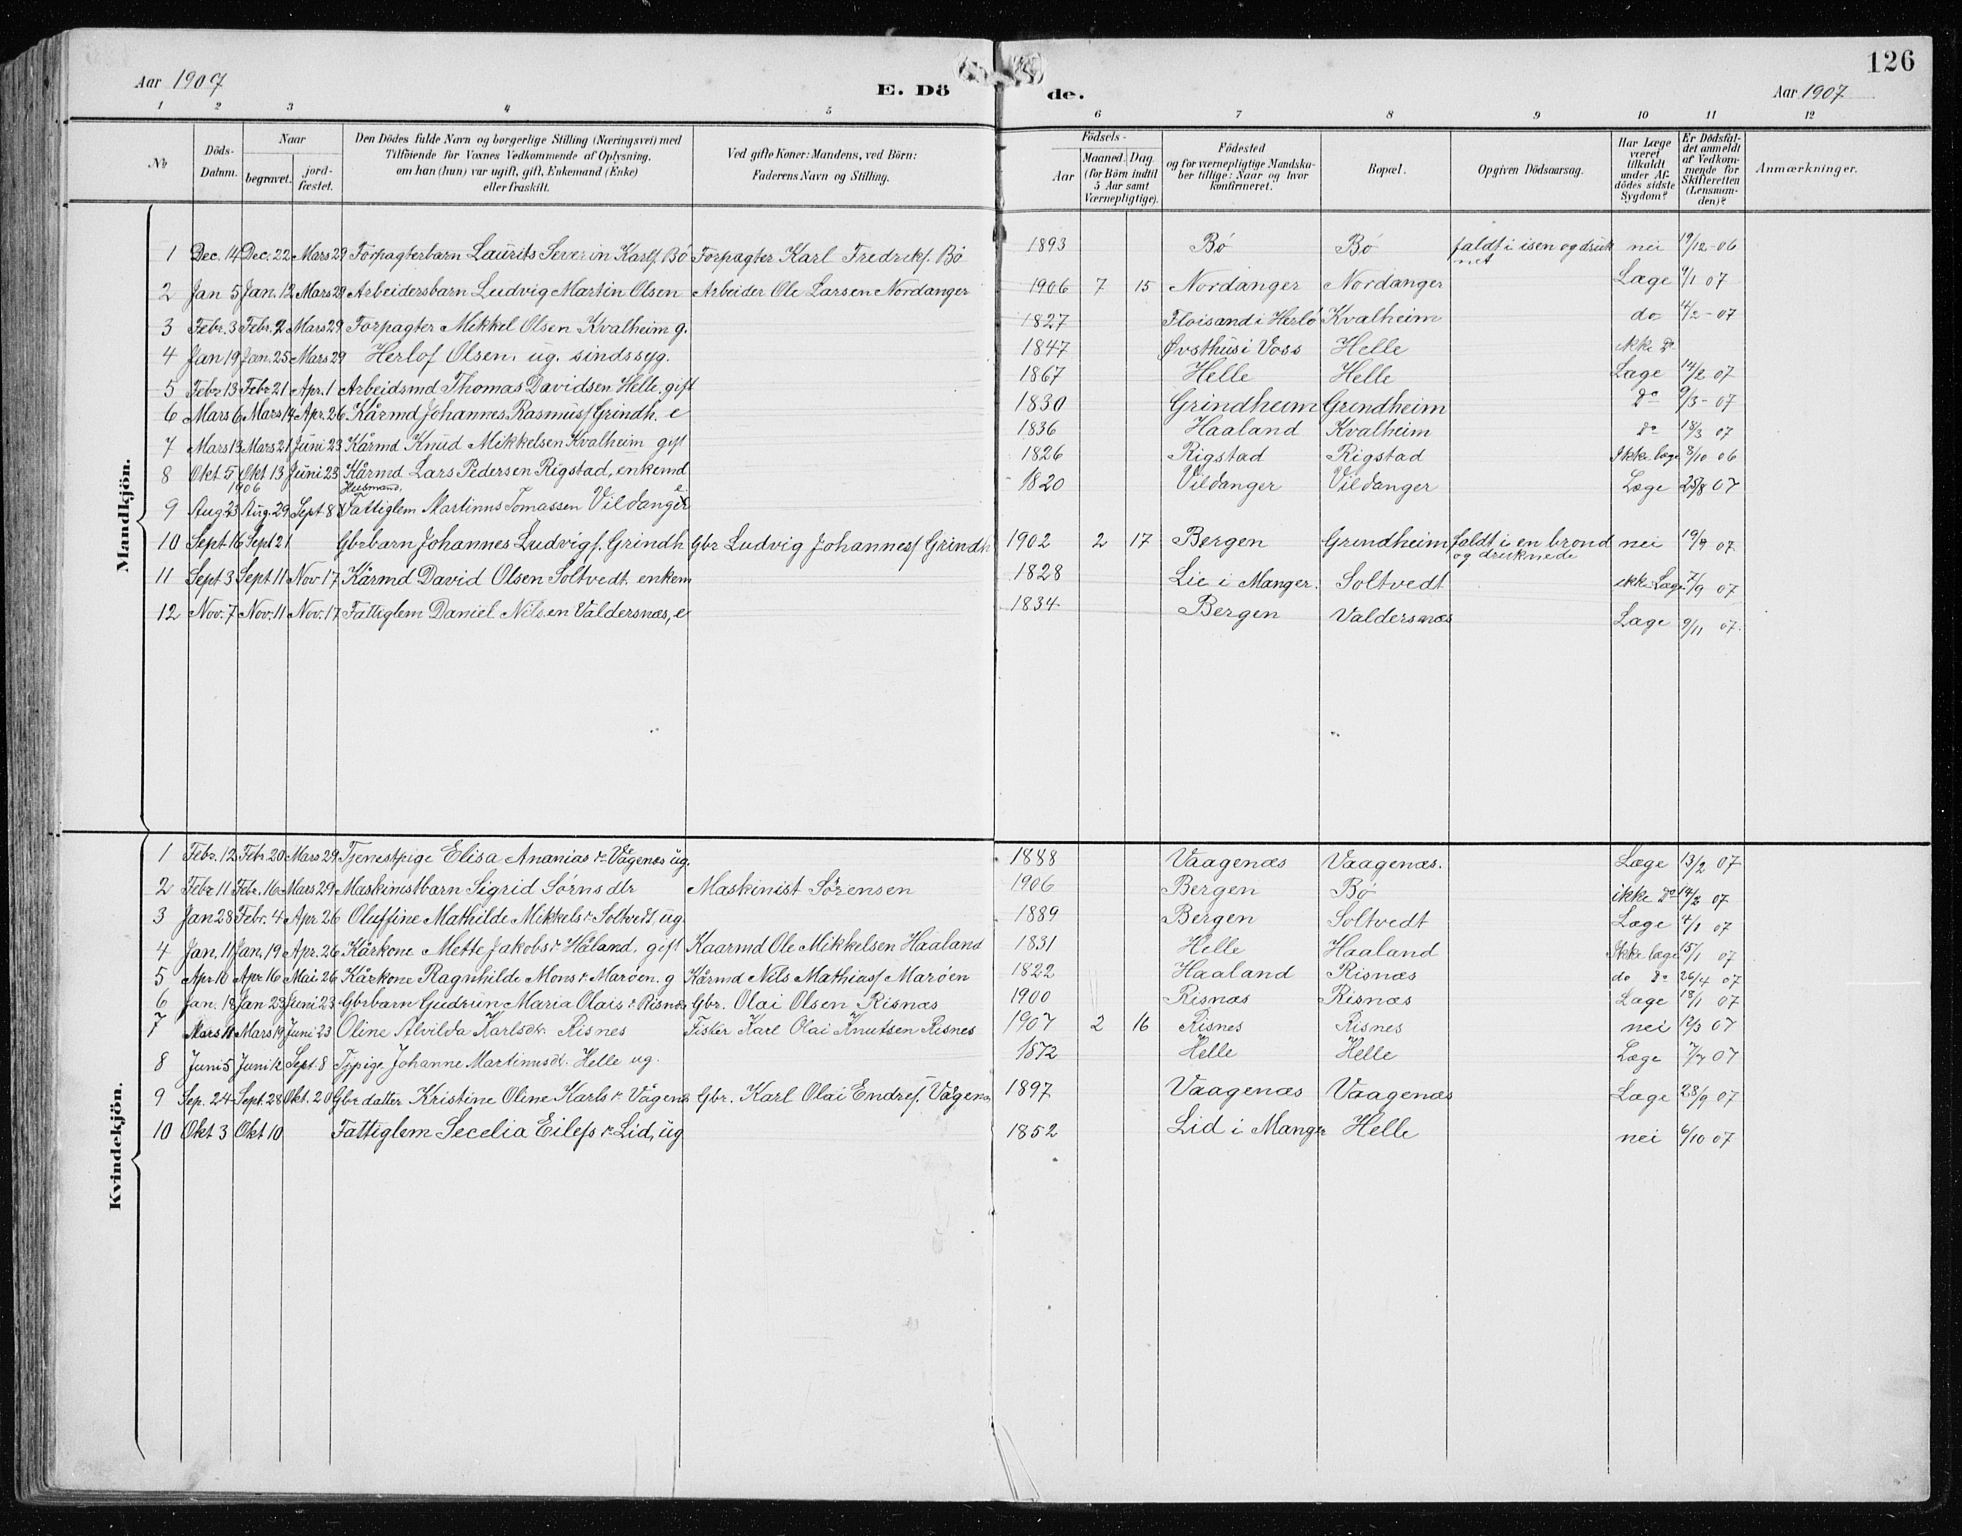 126
Aar 1907 E. Dö de. Aar 1907
1 2 3 4 5 6 7 8 9 10 11 12
No
Döds-Datum.
Naar
begravet.
jord-fæstet.
Den Dödes fulde Navn og borgerlige Stilling (Næringsvei) med
Tilföiende for Voxnes Vedkommende af Oplysning,
om han (hun) var ugift, gift, Enkemand (Enke)
eller fraskilt.
Ved gifte Koner: Mandens, ved Börn:
Faderens Navn og Stilling.
Födsels-
Aar
Maaned. Dag.
(for Börn indtil
5 Aar samt
Værnepligtige).
Födested
og for værnepligtige Mandska-
ber tillige: Naar og hvor
konfirmeret.
Bopæl.
Opgiven Dödsaarsag.
Har Læge
været
tilkaldt
under Af-
dödes sidste
Sygdom?
Er Dödsfal-
det anmeldt
af Vedkom-
mende for
Skifteretten
(Lensman-
den)?
Anmærkninger.
Mandkjön.
1 Dec. 14 Dec. 22 Mars 29 Forpagterbarn Laurits Severin Karlſ. Bö Forpagter Karl Fredrikſ. Bö 1893 Bö Bö faldt i isen og druk net nei 19/12-06
2 Jan 5 Jan. 12 Mars 29 Arbeidersbarn Ludvig Martin Olsen Arbeider Ole Larsen Nordanger 1906 7 15 Nordanger Nordanger Læge 9/1 07
3 Febr. 3 Febr. 2 Mars 29 Forpagter Mikkel Olsen Kvalheim g. 1827 Floisand i Herlö Kvalheim do 4/2-07
4 Jan 19 Jan. 25 Mars 29 Herlof Olsen, ug. sindssyg. 1847 Øvsthus i Voss Helle ikke Do
5 Febr 13 Febr 21 Apr. 1 Arbeidsmd Thomas Davidsen Helle, gift 1867 Helle Helle Læge 14/2 07
6 Mars 6 Mars 14 Apr. 26 Kårmd Johannes Rasmusſ Grindh. e 1830 Grindheim Grindheim Do 9/3-07
7 Mars 13 Mars 21 Juni 23 Kårmd Knud Mikkelsen Kvalheim gift 1836 Haaland Kvalheim do 18/3 07
8 Okt 5 Okt 13 Juni 23 Kårmd Lars Pedersen Rigstad, enkemd 1826 Rigstad Rigstad Ikke læge 8/10 06
1906 Husmand,
9 Aug 23 Aug. 29 Sept 8 Fattiglem Martinus Tomassen Vildanger e 1820 Vildanger Vildanger Læge 25/8 07
10 Sept 16 Sept 21 Gbrbarn Johannes Ludvigſ. Grindh Gbr Ludvig Johannesſ Grindh 1902 2 17 Bergen Grindheim faldt i en brond og druknede nei 19/9 07
11 Sept 3 Sept 11 Nov 17 Kårmd David Olsen Soltvedt, enkem 1828 Lie i Manger. Soltvedt ikke Læge 7/9 07
12 Nov. 7 Nov. 11 Nov. 17 Fattiglem Daniel Nilsen Valdersnæs, e 1834 Bergen Valdersnæs Læge 9/11 07.
Kvindekjön.
1 Febr. 12 Febr 20 Mars 29 Tjenestpige Elisa Ananias dr Vågenæs ug. 1888 Vaagenæs Vaagenæs. Læge 13/2 07
2 Febr 11 Febr. 16 Mars 29 Maskinistbarn Sigrid Sörns dtr Maskinist Sörensen 1906 Bergen Bö ikke Do 14/2 07
3 Jan 28 Febr. 4 Apr 26 Oluffine Mathilde Mikkels dr Soltvedt, ug. 1889 Bergen Soltvedt Læge 4/1 07
4 Jan. 11 Jan. 19 Apr. 26 Kårkone Mette Jakobs dr Håland, gift Kaarmd Ole Mikkelsen Haaland 1831 Helle Haaland Ikke læge 15/1 07
5 Apr. 10 Apr 16 Mai 26 Kårkone Ragnhilde Mons dr Marøen. g Kårmd Nils Mathiasſ Marøen 1822 Haaland Risnæs do Do 26/4 07
6 Jan. 18 Jan 23 Juni 23 Gbrbarn Gudrun Maria Olais dr Risnæs Gbr. Olai Olsen Risnæs 1900 Risnæs Risnæs Læge 18/1 07
7 Mars 11 Mars 19 Juni 23 Oline Alvilda Karlsdtr. Risnes Fisker Karl Olai Knutsen Risnes 1907 2 16 Risnes Risnes nei 19/3 07
8 Juni 5 Juni 12 Sept. 8 Tjpige Johanne Martinusd. Helle ug. 1872 Helle Helle Læge 7/7 07
9 Sep. 24 Sept. 28 Okt. 20 Gbrdatter Kristine Oline Karls dr Vågenæs Gbr. Karl Olai Endreſ. Vågenæs 1897 Vaagenæs Vaagenæs Læge 28/9 07
10 Okt 3 Okt 10 Fattiglem Secelia Eilefs dr Lid, ug 1852 Lid i Mangr Helle nei 6/10 07